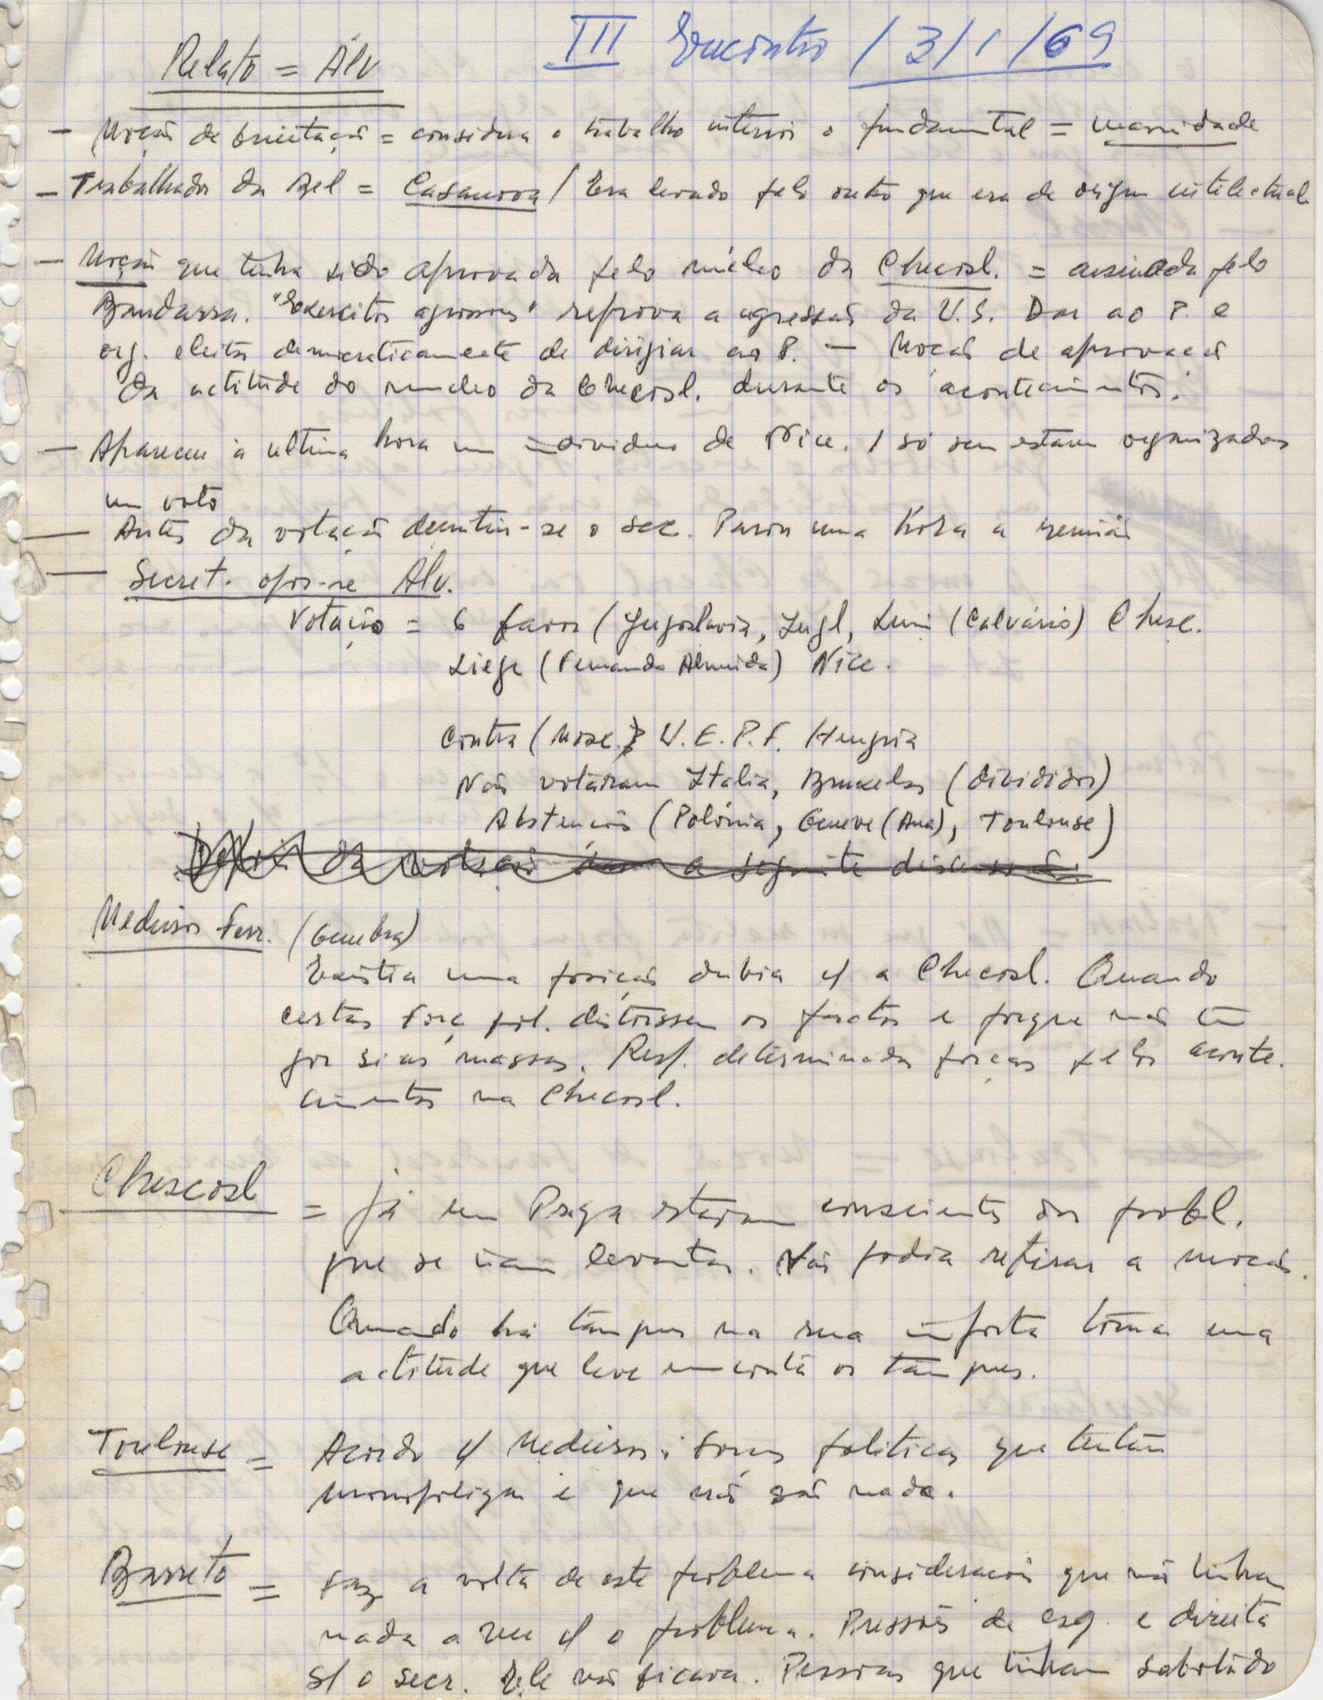 III Encontro / 3/1/69
Relato = Álv
- Moção de orientação = considera o trabalho interior o fundamental = unanimidade
- Trabalhador da Bel = Casanova / Era levado pelo outro que era de origem intelectual
- Moção que tinha sido aprovada pelo núcleo da Checosl. = assinada pelo
Bandarra. "Exercitos agressores" reprova a agressão da U.S. Dar ao P. e
org. eleitos democraticamente de dirigiar ao P. - Moção de aprovação
da actitude do nucleo da Checosl. durante os "acontecimentos".
- Apareceu à ultima hora um individuo de Nice. / só sem estarem organizados
um voto
- Antes da votação demitiu-se o sec. Parou uma hora a reunião
- Secret. opos-se Álv.
Votação = 6 favor (Jugoslavia, Ingl, (Calvário) Chec.
Liege (Fernando Almida) Nice.
Contra (Mosc.) U.E.P.F. Hungria
Não votaram Italia, Bruxelas (divididos)
Abstenção (Polónia, Geneve (Ana), Toulouse)
Depois da votação a seguinte discussão
Medeiros Ferr. (Genebra)
Existia uma posição dubia c/ a Checosl. Quando
certas forç. pol. distorssem os factos e porque não têm
por si as massas. Resp. determinadas forças pelos aconte.
cimentos na Checosl.
Checosl = já em Praga estavam conscientes dos probl.
que se iam levantar. Não podia retirar a moção.
Quando há tanques na rua importa tomar uma
actitude que leve em conta os tanques.
Toulouse = Acordo c/ Medeiros: forças politicas que tentam
monopolizar e que não são nada.
Barreto = faz a volta de este problema consideração que não tinham
nada a ver c/ o problema. Pressões da esq. e direita
s/ o secr. Ele não ficava. Pessoas que tinham sabotado